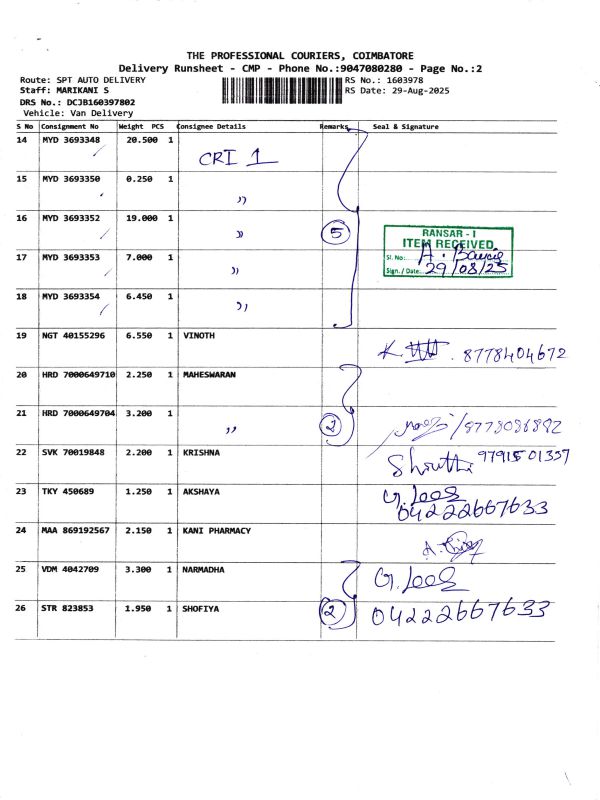 THE PROFESSIONAL COURIERS, COIMBATORE
Delivery Runsheet - CMP - Phone No.:9047080280 - Page No.:2
Route: SPT AUTO DELIVERY RS No.: 1603978
Staff: MARIKANI S RS Date: 29-Aug-2025
DRS No.: DCJB160397802
Vehicle: Van Delivery
S No Consignment No Weight PCS Consignee Details Remarks Seal & Signature
14 MYD 3693348 20.500 1 CRI 1
15 MYD 3693350 0.250 1 ,,
16 MYD 3693352 19.000 1 ,, 5
RANSAR - I
ITEM RECEIVED
17 MYD 3693353 7.000 1 ,, Sl. No:
Sign. / Date: 29/08/25
18 MYD 3693354 6.450 1 ,,
19 NGT 40155296 6.550 1 VINOTH K. 8778404672
20 HRD 7000649710 2.250 1 MAHESWARAN
21 HRD 7000649704 3.200 1 ,, 2 /8778086882
22 SVK 70019848 2.200 1 KRISHNA Shruthi 9791501357
23 TKY 450689 1.250 1 AKSHAYA G. 04222667633
24 MAA 869192567 2.150 1 KANI PHARMACY A.
25 VDM 4042709 3.300 1 NARMADHA G.
26 STR 823853 1.950 1 SHOFIYA 2 04222667633